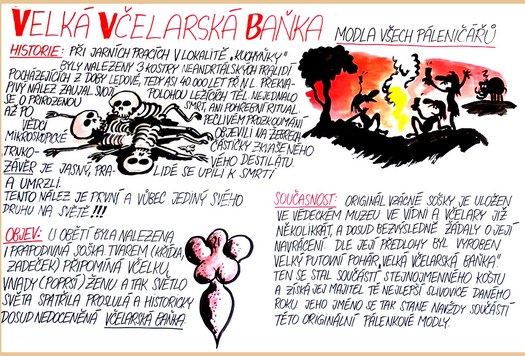 VELKÁ VČELARSKÁ BAŇKA
MODLA VŠECH PÁLENIČÁŘŮ
HISTORIE: PŘI JARNÍCH PRACÍCH V LOKALITĚ „KUCHYŇKY"
BYLY NALEZENY 3 KOSTRY NEANDRTÁLSKÝCH PRALIDÍ
POCHÁZEJÍCÍCH Z DOBY LEDOVÉ, TEDY ASI 40 000 LET PŘ.N.L. PREKVA-
PIVÝ NÁLEZ ZAUJAL SVOJÍ POLOHOU LEŽÍCÍCH TĚL. NEJEDNALO
SE O PŘIROZENOU SMRT, ANI POHŘEBNÍ RITUÁL.
AŽ PO PEČLIVÉM PROZKOUMÁNÍ
VĚDCI OBJEVILI NA ŽEBRECH
MIKROSKOPICKÉ ČÁSTIČKY ZKVAŠENÉHO
TRNKO- VÉHO DESTILÁTU.
ZÁVĚR JE JASNÝ, PRA- LIDÉ SE UPILI K SMRTI
A UMRZLI.
TENTO NÁLEZ JE PRVNÍ A VŮBEC JEDINÝ SVÉHO
DRUHU NA SVĚTĚ !!!
OBJEV: U OBĚTÍ BYLA NALEZENA
I PRAPODIVNÁ SOŠKA. TVAREM (KŘÍDLA,
ZADEČEK) PŘIPOMÍNÁ VČELKU,
VNADY (POPRSÍ) ŽENU A TAK SVĚTLO
SVĚTA SPATŘILA PROSLULÁ A HISTORICKY
DOSUD NEDOCENĚNÁ VČELARSKÁ BAŇKA.
SOUČASNOST: ORIGINÁL VZÁCNÉ SOŠKY JE ULOŽEN
VE VĚDECKÉM MUZEU VE VÍDNI A VČELARY JIŽ
NĚKOLIKRÁT, A DOSUD BEZVÝSLEDNĚ ŽÁDALY O JEJÍ
NAVRÁCENÍ. DLE JEJÍ PŘEDLOHY BYL VYROBEN
VELKÝ PUTOVNÍ POHÁR „VELKÁ VČELARSKÁ BAŇKA"
TEN SE STAL SOUČÁSTÍ STEJNOJMENNÉHO KOŠTU
A ZÍSKÁ JEJ MAJITEL TÉ NEJLEPŠÍ SLIVOVICE DANÉHO
ROKU. JEHO JMÉNO SE TAK STANE NAVŽDY SOUČÁSTÍ
TÉTO ORIGINÁLNÍ PÁLENKOVÉ MODLY.